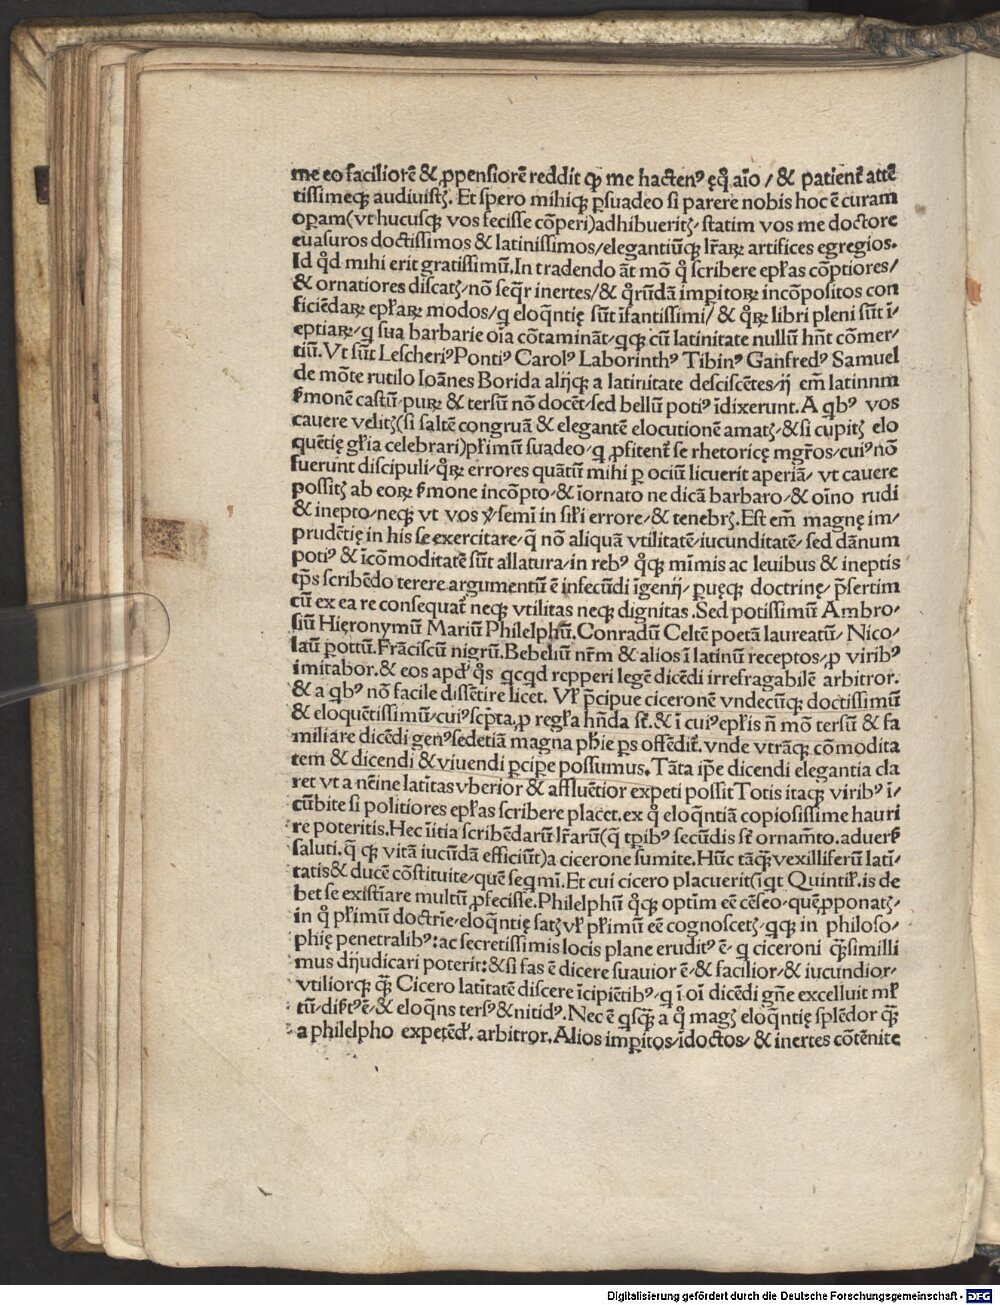 me eo faciliorē & ꝓpensiorē reddit qꝫ me hactenꝰ ęq̃ aīo / & patient᷑ attē
tissimeqꝫ audiuistꝭ. Et spero mihiqꝫ ꝑsuadeo si parere nobis hoc ē curam
opam(vt hucusqꝫ vos fecisse cōperi)adhibueritꝭ/ statim vos me doctore
euasuros doctissimos & latinissimos/elegantiūqꝫ lr̃aꝝ artifices egregios.
Id qd̃ mihi erit gratissimū.In tradendo āt mō q̃ scribere epl̃as cōptiores/
& ornatiores discatꝭ/nō seqr̃ inertes/& qr̃ūdā impitoꝝ incōpositos con
ficiēdaꝝ epl̃aꝝ modos/q eloqñtię sūt īfantissimi/ & qr̃ꝝ libri pleni sūt ī/
eptiaꝝ/q sua barbarie oīa cōtaminãt/qqꝫ cū latinitate nullū hn̄t cōmer/
tiū.Vt sūt Lescheriꝰ Pontiꝰ Carolꝰ Laborinthꝰ Tibinꝰ Ganfredꝰ Samuel
de mōte rutilo Ioānes Borida alijqꝫ a latinitate desciscētes/ij em̄ latinnm
ẜmonē castū/puꝝ & tersū nō docēt/sed bellū potiꝰ īdixerunt.A qbꝰ vos
cauere velitꝭ(si saltē congruā & elegantē elocutionē amatꝭ/&si cupitꝭ elo
quētię gl̃ia celebrari)pr̃imū suadeo/q ꝓfitent᷑ se rhetoricę mgr̃os/cuiꝰ nō
fuerunt discipuli/qr̃ꝝ errores quātū mihi ꝑ ociū licuerit aperiā/ vt cauere
possitꝭ ab eoꝝ ẜmone incōpto/& īornato ne dicā barbaro/& oīno rudi
& inepto/neqꝫ vt vos in sil̃i errore/& tenebrꝭ.Est em̄ magnę im/
prudētię in his se exercitare/q̃ nō aliquā vtilitatē/iucunditatē/ sed dānum
potiꝰ & īcōmoditatē sūt allatura/in rebꝰ q̃qꝫ mīmis ac leuibus & ineptis
tp̄s scribēdo terere argumentū ē infecūdi īgenij/ pueqꝫ doctrinę/ p̄sertim
cū ex ea re consequat᷑ neqꝫ vtilitas neqꝫ dignitas .Sed potissimū Ambro/
siū Hieronymū Mariū Philelphū.Conradū Celtē poetā laureatū/ Nico/
laū ꝑottū.Frãciscū nigrū.Bebeliū nr̄m & alios ī latinū receptos/ꝓ viribꝰ
imitabor.& eos apd̃ q̃s qcqd repperi legē dicēdi irrefragabilē arbitror.
& a qbꝰ nō facile dissētire licet. Vl̃ p̄cipue ciceronē vndecūqꝫ doctissimū
& eloquētissimū/cuiꝰ scp̄ta/ꝓ regl̃a hn̄da st̃.& ī cuiꝰ epl̃is n̄ mō tersū & fa
miliare dicēdi genꝰ sedetiā magna ph̄ie ꝑs offēdit᷑.vnde vtrāqꝫ cōmodita
tem & dicendi & viuendi ꝑcipe possumus.Tāta ip̄e dicendi elegantia cla
ret vt a nēine latītas vberior & affluētior expeti possit Totis itaqꝫ viribꝰ ī/
cūbite si politiores epl̃as scribere placet.ex q̃ eloqñtiā copiosissime hauri
re poteritis.Hec īitia scribēdarū lr̃arū(q̃ tꝑibꝰ secūdis st̃ ornam̄to.aduerẜ
saluti.q̃ qꝫ vitā iucūdā efficiūt)a cicerone sumite.Hūc tāqꝫ̄ vexilliferū latī/
tatis& ducē cōstituite/quē seqmī.Et cui cicero placuerit(iqt Quintil̃.is de
bet se existīare multū ꝓfecisse.Philelphū q̃qꝫ optim eē cēseo/quē ꝓponatꝭ/
in q̃ pr̃imū doctrīe/eloqñtię satꝭ vl̃ pr̃imū eē cognoscetꝭ/qqꝫ in philoso/
phię penetralibꝰ:ac secretissimis locis plane eruditꝰ ē/ q ciceroni qꝫ̄simili
mus dijudicari poterit:&si fas ē dicere suauior ē/& facilior/& iucundior/
vtiliorqꝫ qꝫ̄ Cicero latītatē discere īcipiētibꝰ/q ī oī dicēdi gn̄e excelluit ml̃
tū/disẜtꝰ ē/& eloqñs tersꝰ &nitidꝰ. Nec ē qsqꝫ̄ a q̃ magꝭ eloqñtię splēdor qꝫ̄
a philelpho expetēd᷑. arbitror.Alios impitos/īdoctos/ & inertes cōtēnite
Digitalisierung gefördert durch die Deutsche Forschungsgemeinschaft - DFG